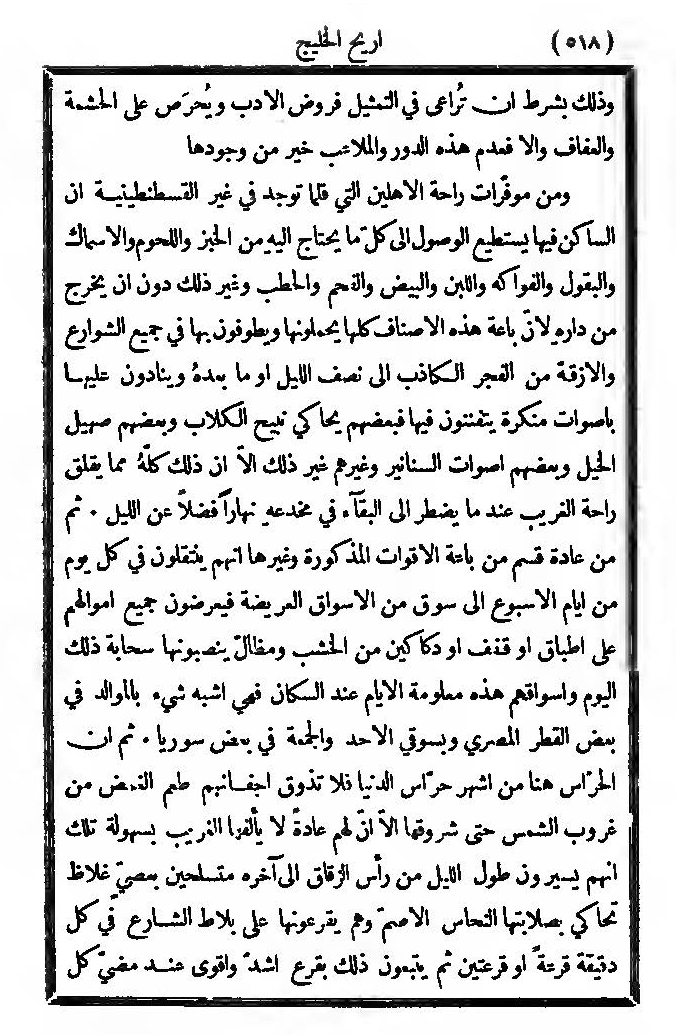 (٥١٨) اريج الخليج
وذلك بشرط ان تُراعى في التمثيل فروض الادب ويُحرَص على الحشمة
والعفاف والا فعدم هذه الدور والملاعب خير من وجودها
ومن موفّرات راحة الاهلين التي قلما توجد في غير القسطنطينية ان
الساكن فيها يستطيع الوصول الى كلّ ما يحتاج اليهِ من الخبز واللحوم والاسماك
والبقول والفواكه واللبن والبيض والفحم والحطب وغير ذلك دون ان يخرج
من دارهِ لانّ باعة هذه الاصناف كلها يحملونها ويطوفون بها في جميع الشوارع
والازقة من الفجر الكاذب الى نصف الليل او ما بعدهُ وينادون عليها
باصوات منكرة يتفننون فيها فبعضهم يحاكي نبيح الكلاب وبعضهم صهيل
الخيل وبعضهم اصوات السنانير وغيرهم غير ذلك الاّ ان ذلك كلّهُ مما يقلق
راحة الغريب عند ما يضطر الى البقآء في مخدعهِ نهاراً فضلاً عن الليل ٠ ثم
من عادة قسم من باعة الاقوات المذكورة وغيرها انهم ينتقلون في كل يوم
من ايام الاسبوع الى سوق من الاسواق العريضة فيعرضون جميع اموالهم
على اطباق او قفف او دكاكين من الخشب ومظالّ ينصبونها سحابة ذلك
اليوم واسواقهم هذه معلومة الايام عند السكان فهي اشبه شيء بالموالد في
بعض القطر المصري وبسوقي الاحد والجمعة في بعض سوريا ٠ ثم ان
الحرّاس هنا من اشهر حرّاس الدنيا فلا تذوق اجفانهم طعم الغمض من
غروب الشمس حتى شروقها الاّ انّ لهم عادةً لا يألفها الغريب بسهولة تلك
انهم يسيرون طول الليل من رأس الزقاق الى آخره متسلحين بعصيّ غلاظ
تحاكي بصلابتها النحاس الاصمّ وهم يقرعونها على بلاط الشارع في كل
دقيقة قرعةً او قرعتين ثم يتبعون ذلك بقرع اشدّ واقوى عند مضيّ كل